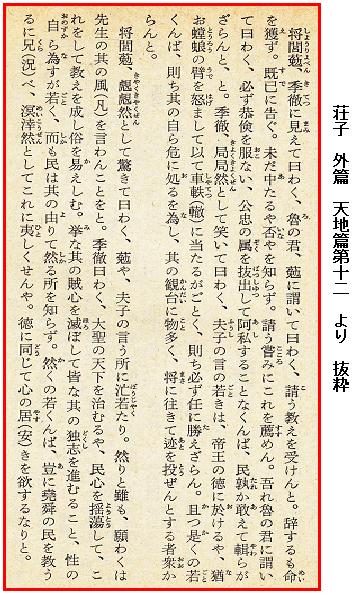 荘子　外篇　天地篇第十二　より　抜粋
将閭葂、季徹に見えて曰わく、魯の君、葂に謂いて曰わく、請う教えを受けんと。辞するも命
を獲ず。既已に告ぐ。未だ中たるや否やを知らず。請う嘗みにこれを薦めん。吾れ魯の君に謂い
て曰わく、必ず恭倹を服ない、公忠の属を抜出して阿私することなくんば、民孰か敢えて輯らが
ざらんと、と。季徹、局局然として笑いて曰わく、夫子の言の若きは、帝王の徳に於けるや、猶
お螳蜋の臂を怒まして以て車軼（轍）に当たるがごとく、則ち必ず任に勝えざらん。且つ是くの若
くんば、則ち其の自ら危に処るを為し、其の観台に物多く、将に往きて迹を投ぜんとする者衆か
らんと。
将閭葂、覤覤然として驚きて曰わく、葂や、夫子の言う所に汒若たり。然りと雖も、願わくは
先生の其の風（凡）を言わんことをと。季徹曰わく、大聖の天下を治むるや、民心を揺蕩して、こ
れをして教えを成し俗を易えしむ。挙な其の賊心を滅ぼして皆な其の独志を進むること、性の
自ら為すが若く、而も民は其の由りて然る所を知らず。然くの若くんば、豈に堯舜の民を教う
るに兄（況）べ、溟涬然としてこれに夷しくせんや。徳に同じて心の居（安）きを欲するなりと。